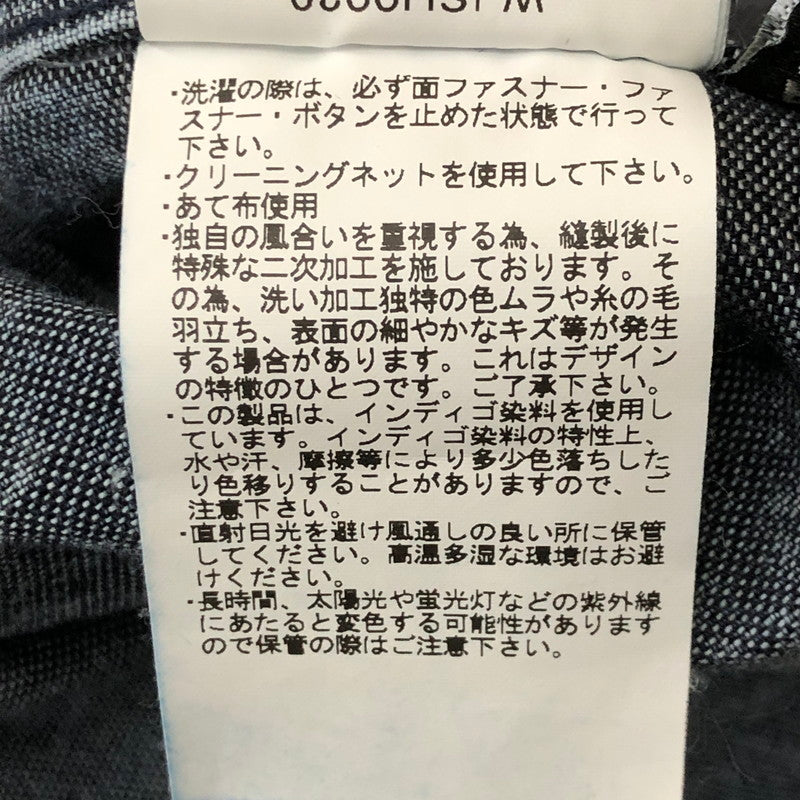 ・洗濯の際は、必ず面ファスナー・ファ
スナー・ボタンを止めた状態で行って
下さい。
・クリーニングネットを使用して下さい。
・あて布使用
・独自の風合いを重視する為、縫製後に
特殊な二次加工を施しております。そ
の為、洗い加工独特の色ムラや糸の毛
羽立ち、表面の細やかなキズ等が発生
する場合があります。これはデザイン
の特徴のひとつです。ご了承下さい。
・この製品は、インディゴ染料を使用し
ています。インディゴ染料の特性上、
水や汗、摩擦等により多少色落ちした
り色移りすることがありますので、ご
注意下さい。
・直射日光を避け風通しの良い所に保管
してください。高温多湿な環境はお避
けください。
・長時間、太陽光や蛍光灯などの紫外線
にあたると変色する可能性があります
ので保管の際はご注意下さい。